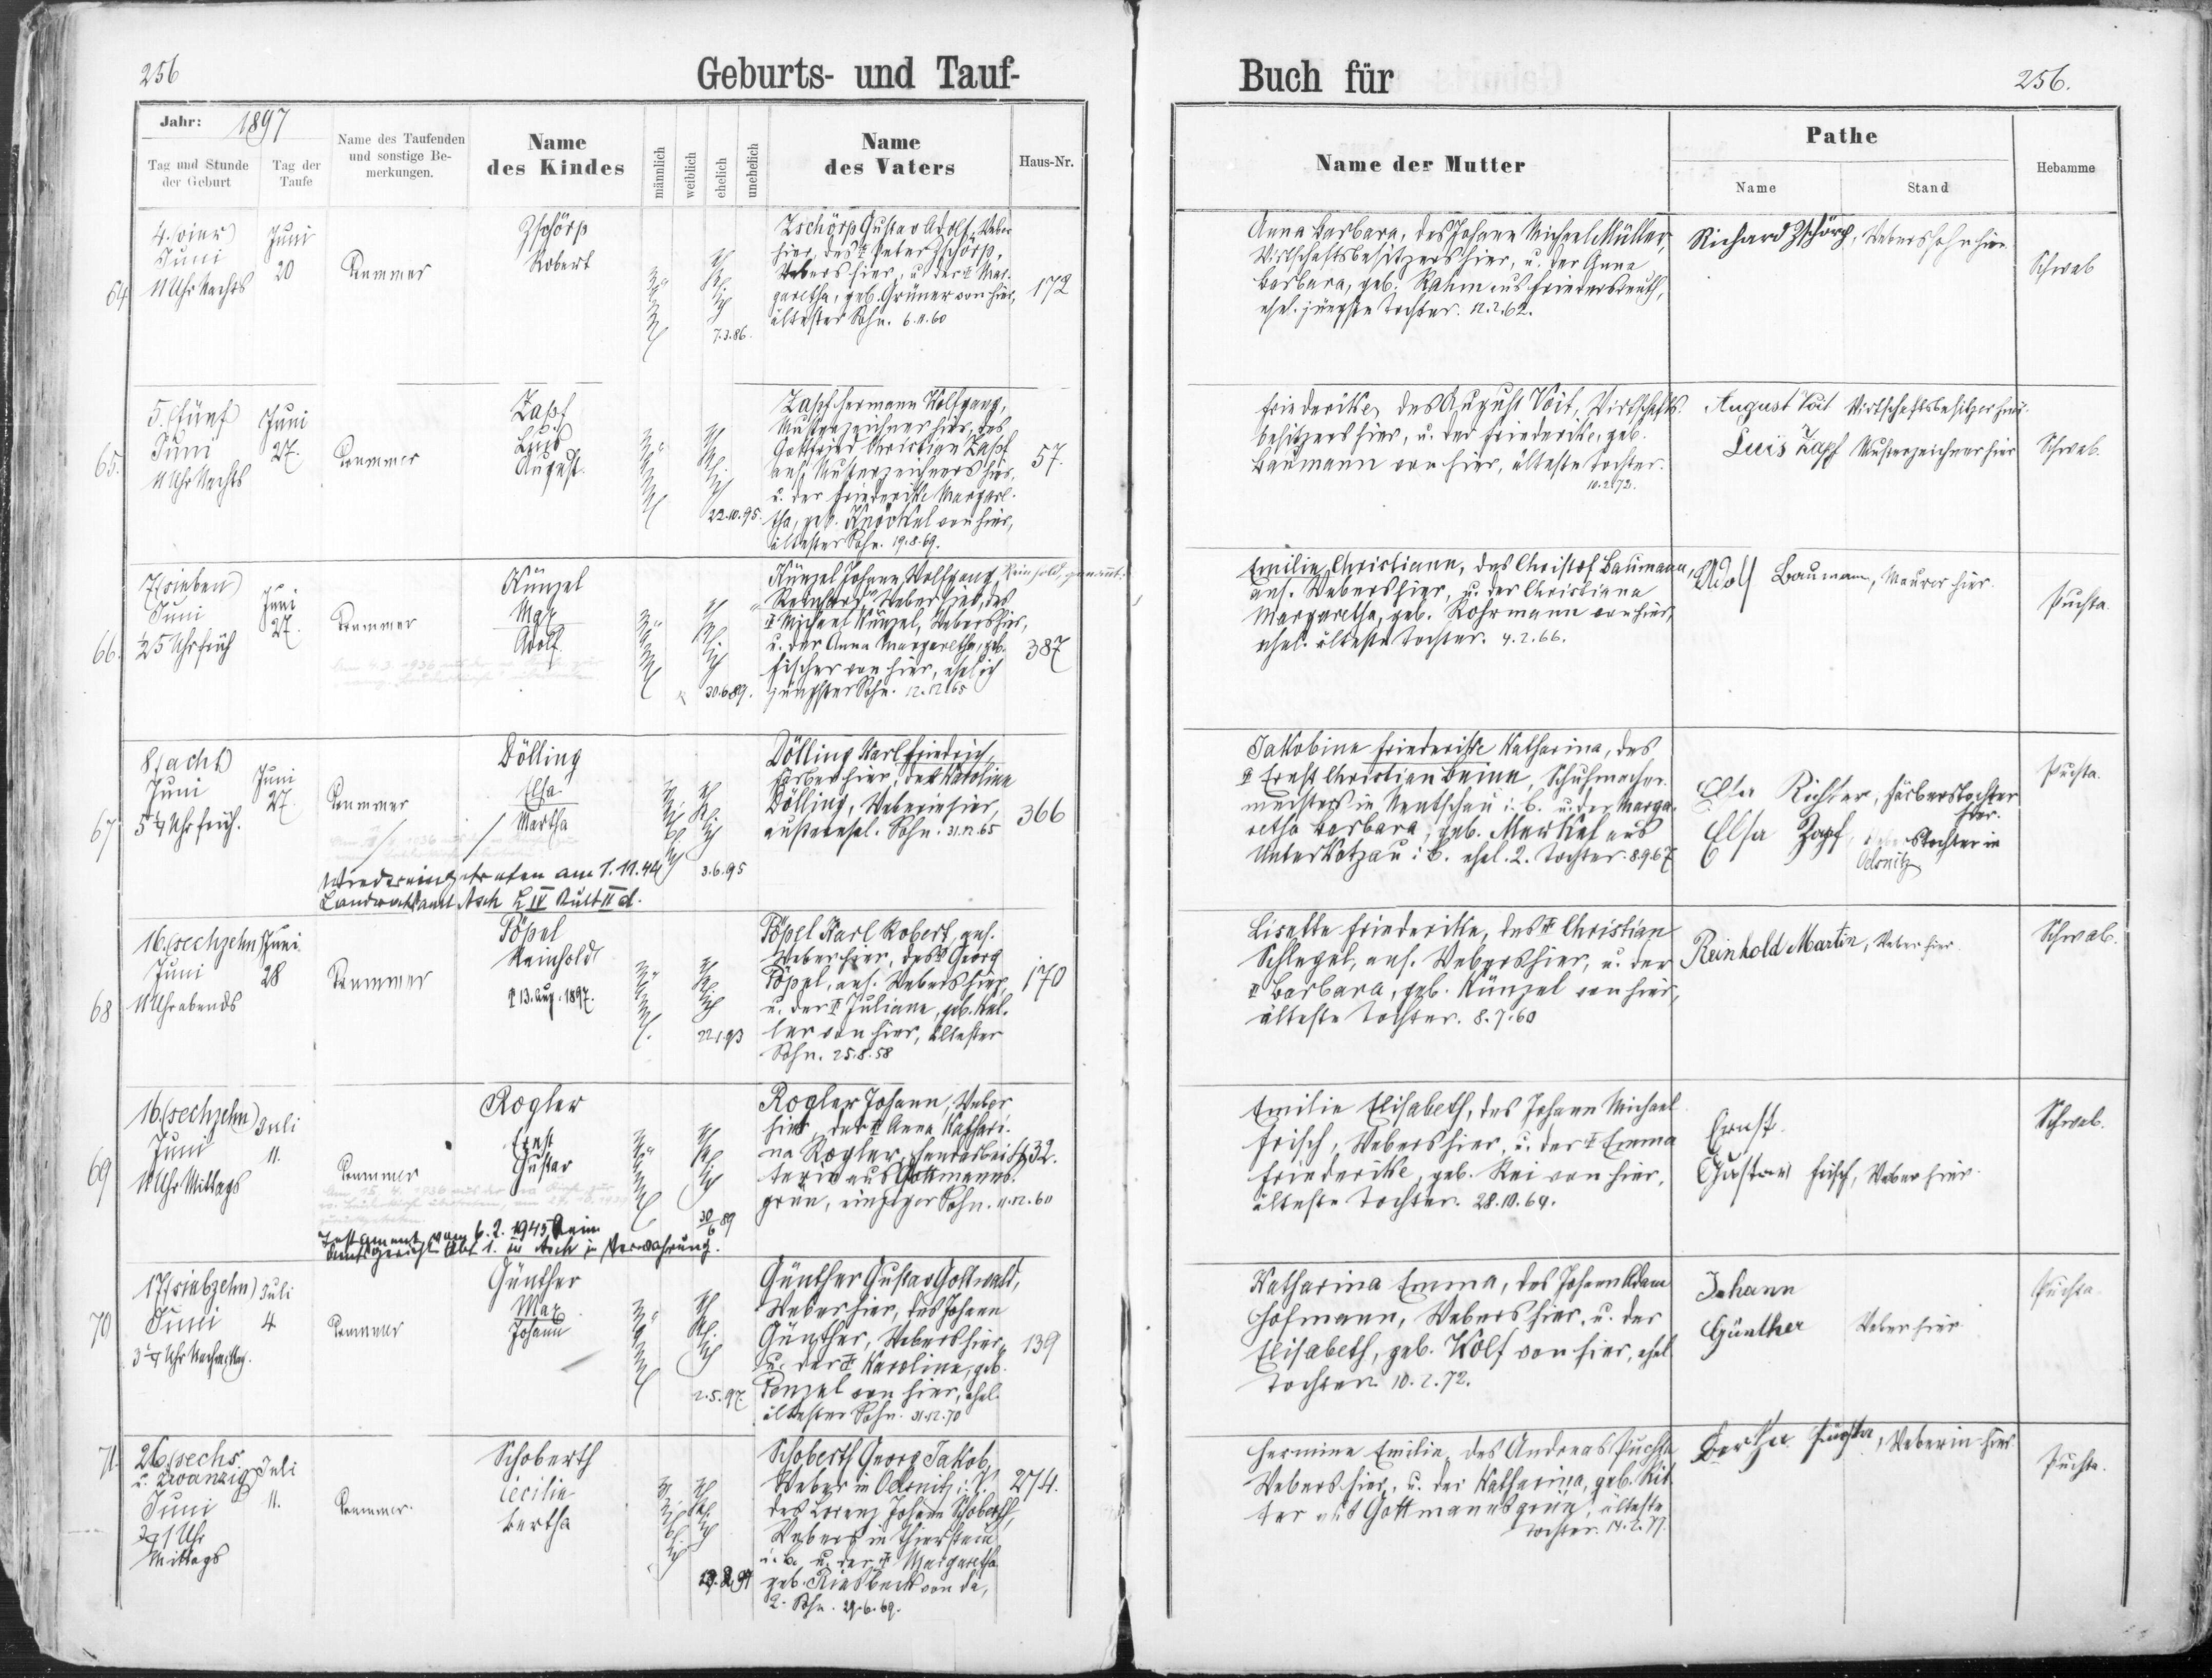 256
Geburts- und Tauf-
Buch für
256.
Jahr: 1897
Tag und Stunde der Geburt
Tag der Taufe
Name des Taufenden und sonstige Bemerkungen.
Name des Kindes
männlich
weiblich
ehelich
unehelich
Name des Vaters
Haus-Nr.
Name der Mutter
Pathe
Name
Stand
Hebamme
64
4. (vier)
Juni
11 Uhr Nachts
Juni
20
Krummer
Zschörp
Robert
männl
ehelich
7.3.86.
Zschörp Gustav Adolf, Weber
hier, des Peter Zschörp,
Webers hier, u. der Mar-
garetha, geb. Grüner von hier,
ältester Sohn. 6.11.60
172
Anna Barbara, des Johann Michael Müller,
Wirtschaftsbesitzers hier, u. der Anna
Barbara, geb. Rahm aus Friedersreuth,
ehel. jüngste Tochter. 12.2.62.
Richard Zschörp, Weberssohn hier
Schwab
65.
5. (fünf)
Juni
11 Uhr Nachts
Juni
27.
Krummer
Zapf
Luis
August.
männl
ehelich
22.10.95.
Zapf Hermann Wolfgang,
Musterzeichner hier, des
Gottfried Christian Zapf
ans. Musterzeichners hier,
u. der Friederike Margare-
tha, geb. Künzel von hier,
ältester Sohn. 19.8.69.
57.
Friederike, des August Voit, Wirtschafts-
besitzers hier, u. der Friederike, geb.
Baumann von hier, älteste Tochter.
10.2.72.
August Voit Wirtschaftsbesitzer hier
Luis Zapf Musterzeichner hier
Schwab.
66.
7 (sieben)
Juni
½ 5 Uhr früh
Juni
27.
Krummer
Künzel
Max
Adolf.
männl
ehelich
30.6.89.
Künzel Johann Wolfgang, Reinhold, genannt.
Reinhard, Weber hier, des
Michael Künzel, Webers hier,
u. der Anna Margaretha, geb.
Fischer von hier, ehelich
jüngster Sohn. 12.12.65
387
Emilie Christiane, des Christof Baumann,
ans. Webers hier, u. der Christiana
Margaretha, geb. Rohrmann von hier,
ehel. älteste Tochter. 4.2.66.
Adolf Baumann, Maurer hier.
Puchta.
67
8 (acht)
Juni
5 ¼ Uhr früh.
Juni
27.
Krummer
Dölling
Elsa
Martha
weiblich
ehelich
3.6.95
Wiedereingetreten am 1.11.44
Landratsamt Asch L IV Kult II d.
Dölling Karl Friedrich,
Färber hier, der Karoline
Dölling, Weberin hier,
außerehel. Sohn. 31.12.65
366
Jakobine Friederike Katharina, des
Ernst Christian Beinn, Schuhmacher-
meisters in Rentschau i. B. u. der Marga-
retha Barbara, geb. Merkel aus
Unterkotzau i. B. ehel. 2. Tochter. 8.9.67
Elsa Richter, Färberstochter
hier.
Elsa Zapf, Weberstochter in
Oelsnitz
Puchta.
68
16. (sechzehn)
Juni
11 Uhr abends
Juni
28
Krummer
Pöpel
Reinhold
13. Aug. 1897.
männl.
ehelich
Pöpel Karl Robert, ans.
Weber hier, des Georg
Pöpel, ans. Webers hier,
u. der Juliane, geb. Kel-
ler von hier, ältester
Sohn. 25.8.58
170
Lisette Friederike, des Christian
Schlegel, ans. Webers hier, u. der
Barbara, geb. Künzel von hier,
älteste Tochter. 8.7.60
Reinhold Martin, Weber hier.
Schwab.
69
16. (sechzehn)
Juni
11 Uhr Mittags
Juli
11.
Krummer
Rogler
Ernst
Gustav
männl
ehelich
30/6 89
Testament vom 6.2.1945 beim
Amtsgericht Abt. 1. in Asch in Verwahrung.
Rogler Johann, Weber
hier, der Anna Kathari-
na Rogler, Handarbei-
terin aus Gottmanns-
grün, einziger Sohn. 11.12.60
432.
Emilie Elisabeth, des Johann Michael
Frisch, Webers hier, u. der Emma
Friederike, geb. Rei von hier,
älteste Tochter. 28.10.64.
Ernst
Gustav Frisch, Weber hier.
Schwab.
70
17 (siebzehn)
Juni
3 ¼ Uhr Nachmittag.
Juli
4
Krummer
Günther
Max
Johann
männl
ehelich
2.5.97.
Günther Gustav Gottwald,
Weber hier, des Johann
Günther, Webers hier,
u. der Karoline, geb.
Penzel von hier, ehel.
ältester Sohn. 31.12.70
139
Katharina Emma, des Johann Adam
Hofmann, Webers hier, u. der
Elisabeth, geb. Wolf von hier, ehel.
Tochter. 10.2.72.
Johann
Günther Weber hier.
Puchta.
71.
26. (sechs
u. zwanzig)
Juni
¾ 1 Uhr
Mittags
Juli
11.
Krummer.
Schoberth
Cecilie
Bertha
weiblich
ehelich
Schoberth Georg Jakob,
Weber in Oelsnitz i. V.
des Lorenz Johann Schoberth,
Webers in Thierstein
i. B. u. der Margaretha
geb. Riesbeck von da,
2. Sohn. 29.6.69.
274.
Hermine Emilie, des Andreas Puchta
Webers hier, u. der Katharina, geb. Rit-
ter aus Gottmannsgrün, älteste
Tochter. 14.2.77.
Bertha Puchta, Weberin hier.
Puchta.